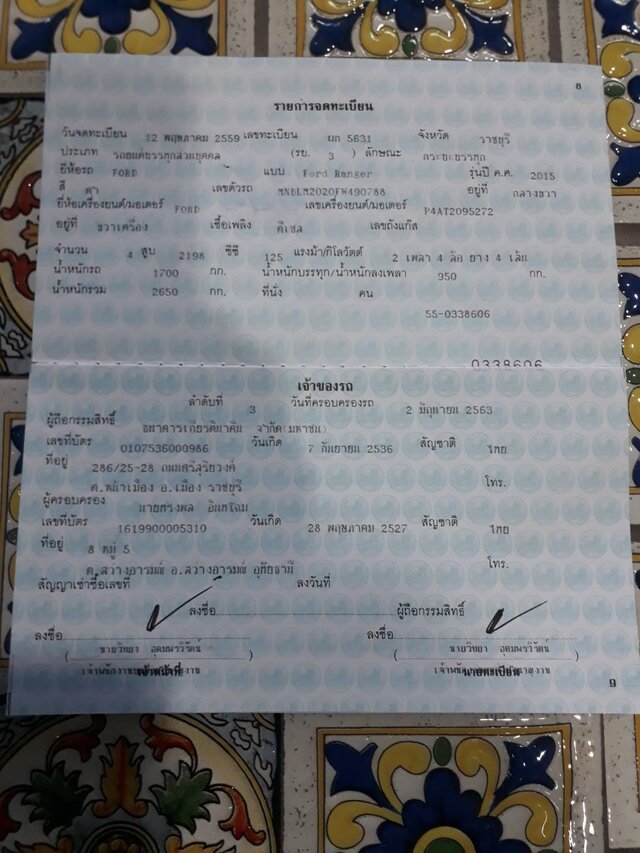 8
รายการจดทะเบียน
วันจดทะเบียน 12 พฤษภาคม 2559 เลขทะเบียน ผก 5631 จังหวัด ราชบุรี
ประเภท รถยนต์บรรทุกส่วนบุคคล (รย. 3 ) ลักษณะ กระบะบรรทุก
ยี่ห้อรถ FORD แบบ Ford Ranger รุ่นปี ค.ศ. 2015
สี ดำ เลขตัวรถ MNBLM2020FW490788 อยู่ที่ กลางขวา
ยี่ห้อเครื่องยนต์/มอเตอร์ FORD เลขเครื่องยนต์/มอเตอร์ P4AT2095272
อยู่ที่ ขวาเครื่อง เชื้อเพลิง ดีเซล เลขถังแก๊ส
จำนวน 4 สูบ 2198 ซีซี 125 แรงม้า/กิโลวัตต์ 2 เพลา 4 ล้อ ยาง 4 เส้น
น้ำหนักรถ 1700 กก. น้ำหนักบรรทุก/น้ำหนักลงเพลา 950 กก.
น้ำหนักรวม 2650 กก. ที่นั่ง คน
55-0338606
0338606
เจ้าของรถ
ลำดับที่ 3 วันที่ครอบครองรถ 2 มิถุนายน 2563
ผู้ถือกรรมสิทธิ์ ธนาคารเกียรตินาคิน จำกัด(มหาชน)
เลขที่บัตร 0107536000986 วันเกิด 7 กันยายน 2536 สัญชาติ ไทย
ที่อยู่ 286/25-28 ถนนศรีสุริยวงศ์
ต.หน้าเมือง อ.เมือง ราชบุรี โทร.
ผู้ครอบครอง นายทรงพล อินทโฉม
เลขที่บัตร 1619900005310 วันเกิด 28 พฤษภาคม 2527 สัญชาติ ไทย
ที่อยู่ 8 หมู่ 5
ต.สว่างอารมณ์ อ.สว่างอารมณ์ อุทัยธานี โทร.
สัญญาเช่าซื้อเลขที่ ลงวันที่
ลงชื่อ ผู้ถือกรรมสิทธิ์
ลงชื่อ ลงชื่อ
( นายวิทยา อุดมพรวิรัตน์ ) ( นายวิทยา อุดมพรวิรัตน์ )
เจ้าหน้าที่ นายทะเบียน
9